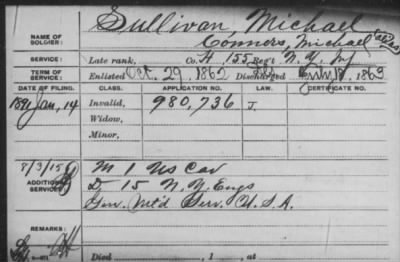 NAME OF SOLDIER: Sullivan, Michael
Connors, Michael alias
SERVICE: Late rank, Co. H, 155 Reg't N.Y. Inf
TERM OF SERVICE: Enlisted Oct. 29, 1862 Discharged 1863
DATE OF FILING. CLASS. APPLICATION NO. LAW. CERTIFICATE NO.
1891 Jan, 14 Invalid, 980,736 J.
Widow,
Minor,
8/3/15
ADDITIONAL SERVICES: M 1 US Cav
D 15 N.Y. Engs
Gen. Mt'd Serv. U.S.A.
REMARKS:
Died , 1 , at